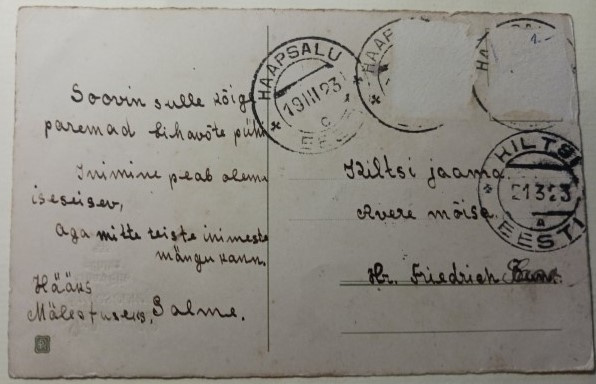 Soovin sulle kõige
paremad lihavõte pühi
Inimine peab olema
iseseisev,
Aga mitte teiste inimeste
mängu kann.
Hääks
Mälestuseks, Salme.
HAAPSALU
19 III 23
C
EESTI
HAAP
1.-
KILTSI
21 3 23
EESTI
Kiltsi jaama
Avere mõisa
Hr. Friedrich